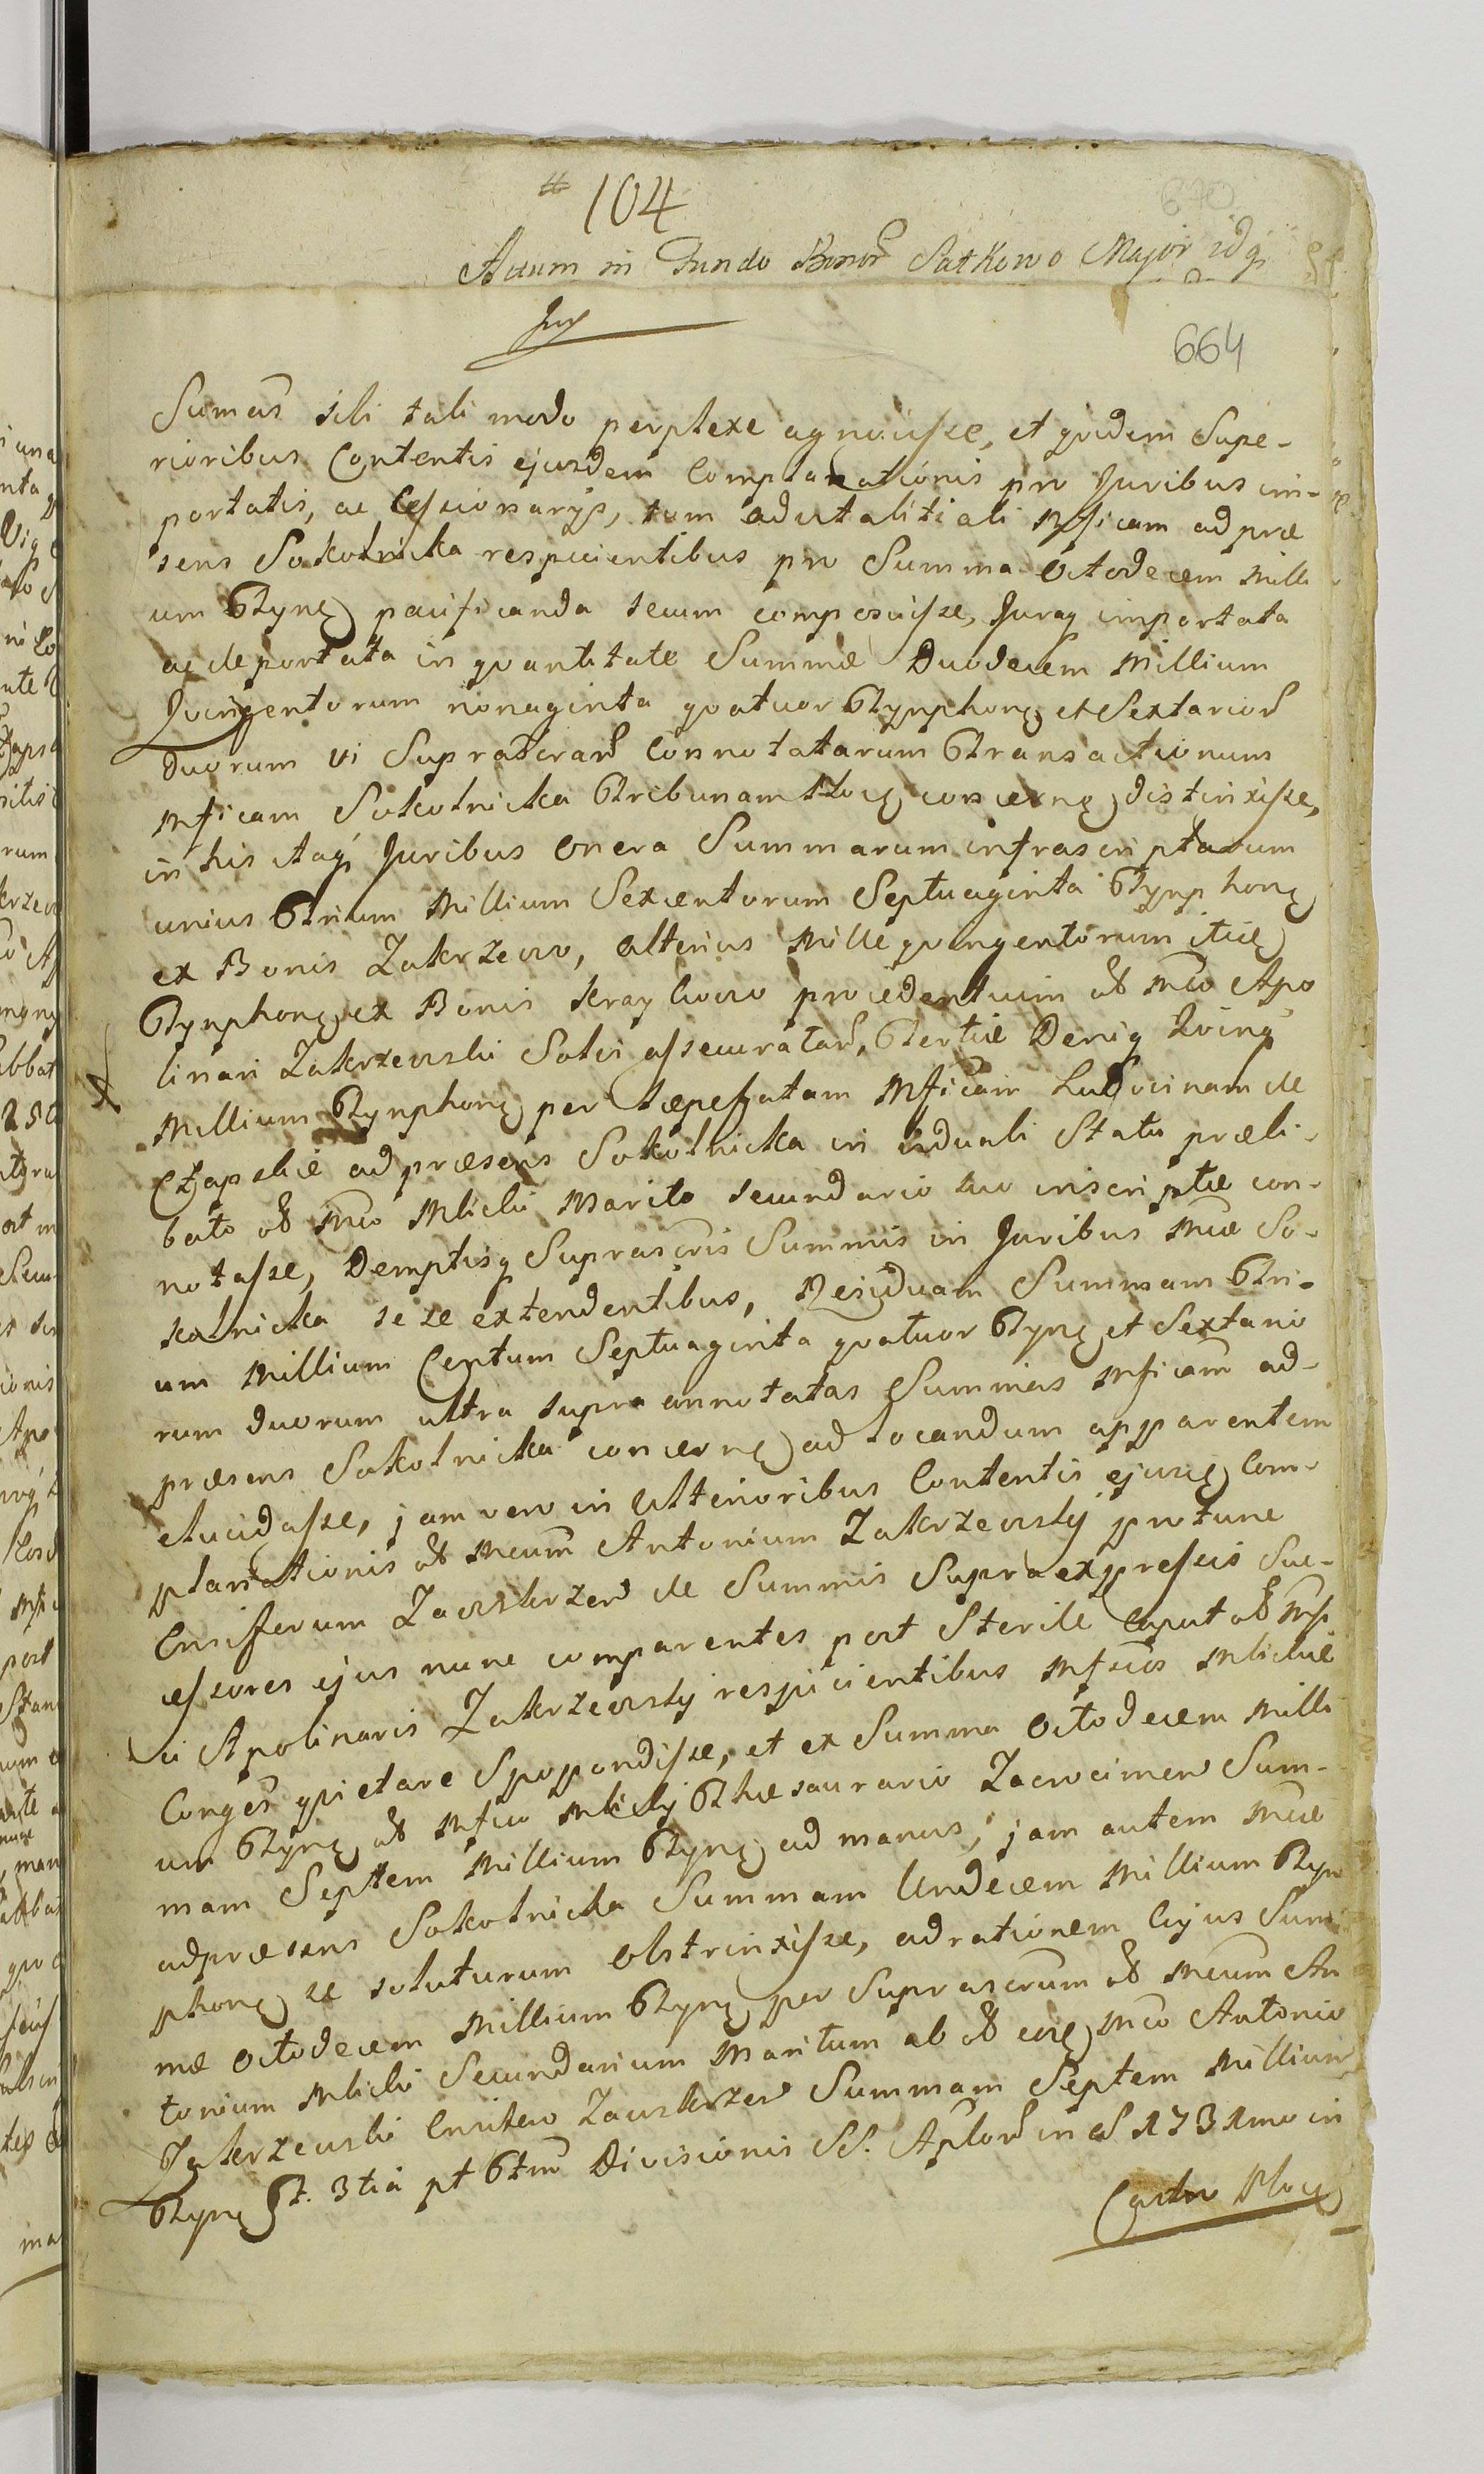 104
670
Actum in Fundo Bonor Sutkowo Major idq
664
Sumas sibi tali modo perplexe agnovisse, et quidem Supe-
rioribus Contentis ejusdem Complanationis pro Juribus im-
portatis, ac Cessionarys, tum advitalitiali Mficam ad præ
sens Sokolnicka respicientibus pro Summa Octodecem Milli
um Tynę pacificanda secum composuisse, Juraq importata
ac deportata in quantitate Summæ Duodecem Millium
Quingentorum nonaginta quatuor Tynphonę et Sextarior
duorum vi Suprascrar Connotatarum Transactionum
Mficam Sokolnicka Tribunam Plocę concernę distinxisse,
in his itaq Juribus onera Summarum infrascriptarum
unius Trium Millium Sexcentorum Septuaginta Tynphonę
ex Bonis Zakrzewo, alterius Mille quingentorum itię
Tynphonę ex Bonis Kraykowo procedentium olt Mco Apo
linari Zakrzewski Soli assecuratar, Tertiæ Deniq Quinq
Millium Tynphonę per sæpefatam Mficam Ludvinam de
Czapskie ad præsens Sokolnicka in viduali Statu præli-
bato olt Mco Mlicki Marito secundario suo inscriptæ con-
notasse, Demptisq Suprascris Summis in Juribus Mcæ So-
kolnicka sese extendentibus, Residuam Summam Tri-
um Millium Centum Septuaginta quatuor Tynę et Sextario
rum duorum ultra supra annotatas Summas Mficam ad-
præsens Sokolnicka concernę ad locandum apparentem
elucidasse, jam vero in Ulterioribus Contentis ejuscę Com-
planationis olt Mcum Antonium Zakrzewsky protunc
Ensiferum Zawskrzen de Summis Supra expressis Suc-
cessores ejus nunc comparentes post Sterile Caput olt Mfi
ci Apolinaris Zakrzewsky respicientibus Mfcos Mlickie
Conges quietare Spopondisse, et ex Summa Octodecem Milli
um Tynę olt Mfco Mlicky Thesaurario Zacrocimen Sum-
mam Septem Millium Tynę ad manus, jam autem Mcæ
adpræsens Sokolnicka Summam Undecem Millium Tyn
phonę se soluturum obstrinxisse, ad rationem Cujus Sum-
mæ Octodecem Millium Tynę per Suprascrum olt Mcum An
tonium Mlicki Secundarium Maritum ab olt eoę Mco Antonio
Zakrzewski Ensifero Zawskrzen Summam Septem Millium
Tynę F. 3tia pt Ftum Divisionis SS. Aplor in A 1731mo in
Castro Plocę